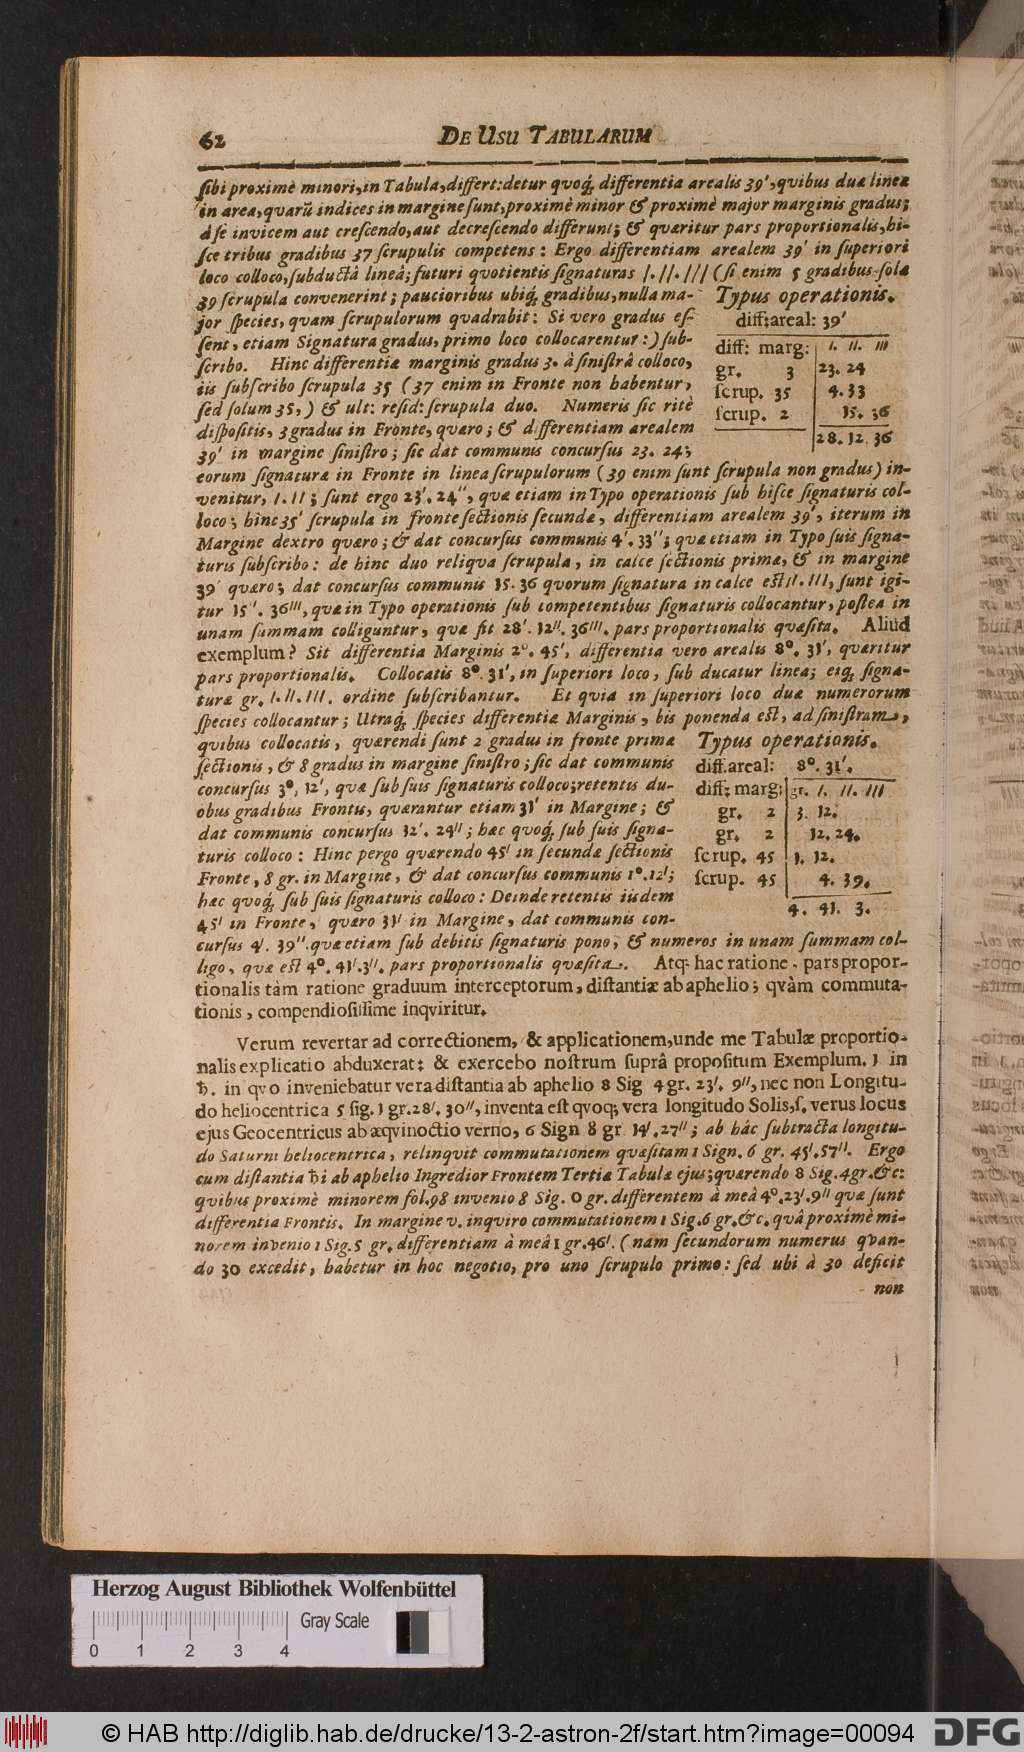 62
DE USU TABULARUM
ſibi proximè minori, in Tabula, differt: detur quoq; differentia arealis 39', qvibus duæ lineæ
in area, quarũ indices in margine ſunt, proximè minor & proximè major marginis gradus;
à ſe invicem aut creſcendo, aut decreſcendo differunt; & quæritur pars proportionalis, hi-
ſce tribus gradibus 37 ſcrupulis competens: Ergo differentiam arealem 39' in ſuperiori
loco colloco, ſubductâ lineâ; futuri quotientis ſignaturas I. II. III (ſi enim 5 gradibus ſola
39 ſcrupula convenerint; paucioribus ubiq; gradibus, nulla ma-
jor ſpecies, quam ſcrupulorum quadrabit: Si vero gradus eſ-
ſent, etiam Signatura gradus, primo loco collocarentur:) ſub-
ſcribo. Hinc differentiæ marginis gradus 3. à ſiniſtrâ colloco,
iis ſubſcribo ſcrupula 35 (37 enim in Fronte non habentur,
ſed ſolum 35,) & ult: reſid: ſcrupula duo. Numeris ſic ritè
diſpoſitis, 3 gradus in Fronte, quæro; & differentiam arealem
39' in margine ſiniſtro; ſic dat communis concurſus 23. 24;
Typus operationis.
diff: areal: 39'
diff: marg: I. II. III
gr. 3 23. 24
ſcrup. 35 4. 33
ſcrup. 2 15. 36
28. 12. 36
eorum ſignaturæ in Fronte in linea ſcrupulorum (39 enim ſunt ſcrupula non gradus) in-
venitur, I. II; ſunt ergo 23'. 24'', quæ etiam in Typo operationis ſub hiſce ſignaturis col-
loco; hinc 35' ſcrupula in fronte ſectionis ſecundæ, differentiam arealem 39', iterum in
Margine dextro quæro; & dat concurſus communis 4'. 33''; quæ etiam in Typo ſuis ſigna-
turis ſubſcribo: de hinc duo reliqva ſcrupula, in calce ſectionis primæ, & in margine
39' quæro; dat concurſus communis 15. 36 quorum ſignatura in calce eſt II. III, ſunt igi-
tur 15''. 36''', quæ in Typo operationis ſub competentibus ſignaturis collocantur, poſtea in
unam ſummam colliguntur, quæ fit 28'. 12''. 36'''. pars proportionalis quæſita. Aliud
exemplum? Sit differentia Marginis 2°. 45', differentia vero arealis 8°. 31', quæritur
pars proportionalis. Collocatis 8°. 31', in ſuperiori loco, ſub ducatur linea; eiq; ſigna-
turæ gr. I. II. III. ordine ſubſcribantur. Et qvia in ſuperiori loco duæ numerorum
ſpecies collocantur; Utraq; ſpecies differentiæ Marginis, bis ponenda eſt, ad ſiniſtram,
quibus collocatis, quærendi ſunt 2 gradus in fronte primæ
ſectionis, & 8 gradus in margine ſiniſtro; ſic dat communis
concurſus 3°, 12', quæ ſub ſuis ſignaturis colloco; retentis du-
obus gradibus Frontis, quærantur etiam 31' in Margine; &
dat communis concurſus 12'. 24''; hæc quoq; ſub ſuis ſigna-
turis colloco: Hinc pergo quærendo 45' in ſecundæ ſectionis
Fronte, 8 gr. in Margine, & dat concurſus communis 1°. 12';
hæc quoq; ſub ſuis ſignaturis colloco: Deinde retentis iisdem
45' in Fronte, quæro 31' in Margine, dat communis con-
Typus operationis.
diff. areal: 8°. 31'.
diff: marg: gr. I. II. III
gr. 2 3. 12.
gr. 2 12. 24.
ſcrup. 45 1. 12.
ſcrup. 45 4. 39.
4. 41. 3.
curſus 4'. 39''. quæ etiam ſub debitis ſignaturis pono, & numeros in unam ſummam col-
ligo, quæ eſt 4°. 41'. 3''. pars proportionalis quæſita. Atq; hac ratione pars propor-
tionalis tàm ratione graduum interceptorum, diſtantiæ ab aphelio; qvàm commuta-
tionis, compendioſiſſime inqviritur.
Verum revertar ad correctionem, & applicationem, unde me Tabulæ proportio-
nalis explicatio abduxerat: & exercebo noſtrum ſuprâ propoſitum Exemplum. 1 in
♄. in qvo inveniebatur vera diſtantia ab aphelio 8 Sig 4 gr. 23'. 9'', nec non Longitu-
do heliocentrica 5 ſig. 1 gr. 28'. 30'', inventa eſt qvoq; vera longitudo Solis, ſ. verus locus
ejus Geocentricus ab æqvinoctio verno, 6 Sign 8 gr 14'. 27''; ab hâc ſubtracta longitu-
do Saturni heliocentrica, relinqvit commutationem quæſitam 1 Sign. 6 gr. 45'. 57''. Ergo
cum diſtantia ♄i ab aphelio Ingredior Frontem Tertiæ Tabulæ ejus; quærendo 8 Sig. 4 gr. &c:
quibus proximè minorem fol. 98 invenio 8 Sig. 0 gr. differentem à meâ 4°. 23'. 9'' quæ ſunt
differentia Frontis. In margine v. inquiro commutationem 1 Sig. 6 gr. &c. quâ proximè mi-
norem invenio 1 Sig. 5 gr. differentiam à meâ 1 gr. 46'. (nam ſecundorum numerus qvan-
do 30 excedit, habetur in hoc negotio, pro uno ſcrupulo primo: ſed ubi à 30 deficit
non
Herzog August Bibliothek Wolfenbüttel
Gray Scale
0 1 2 3 4
© HAB http://diglib.hab.de/drucke/13-2-astron-2f/start.htm?image=00094
DFG